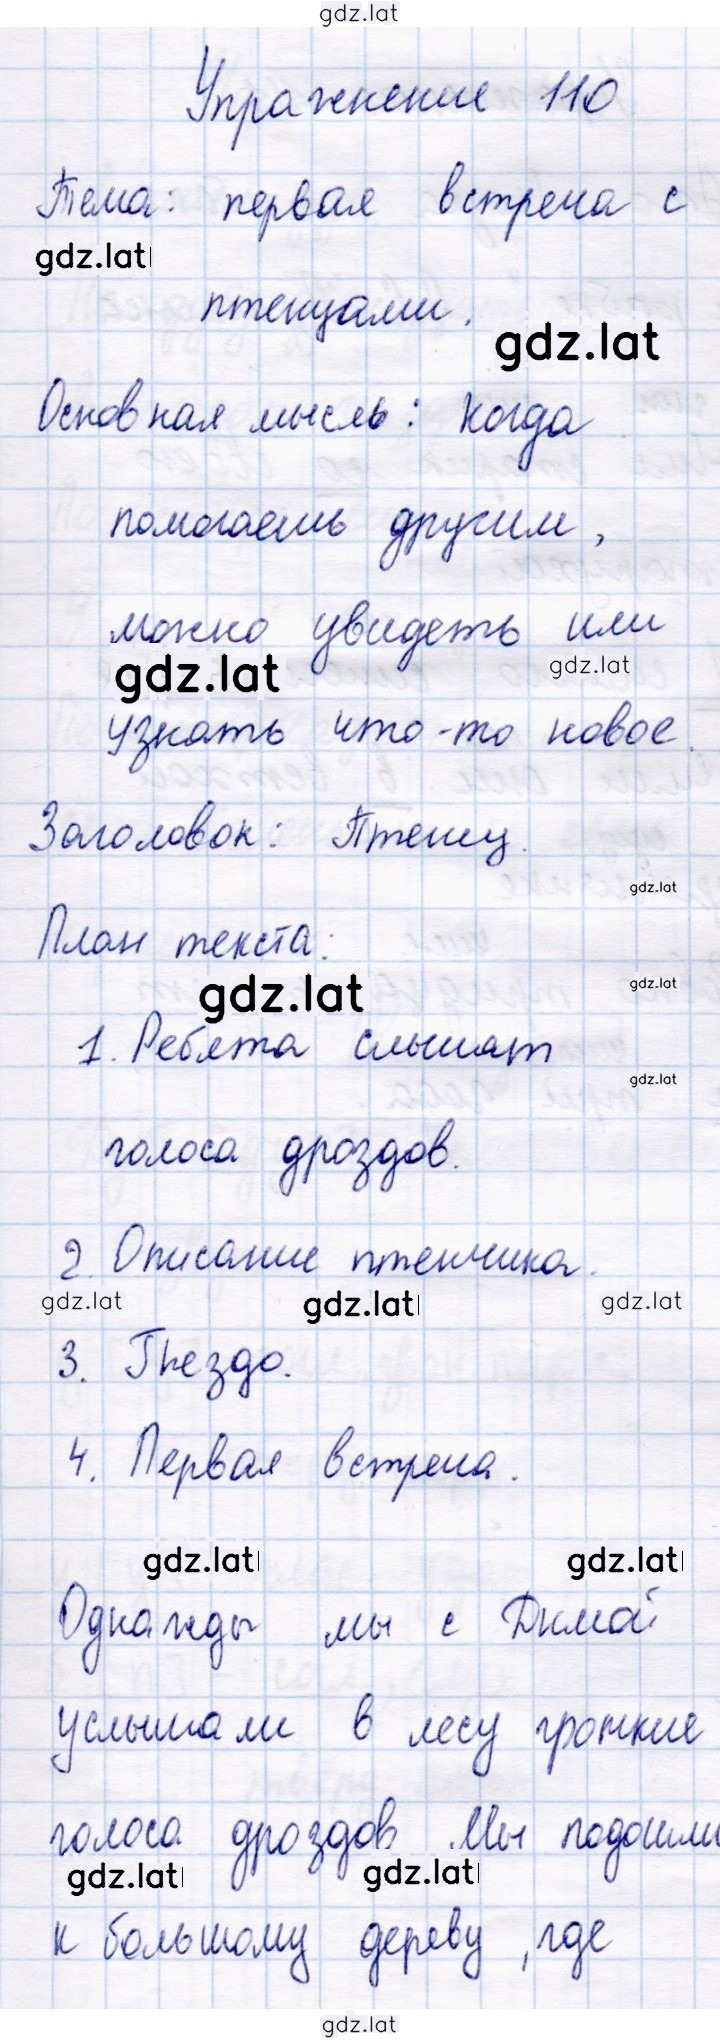 gdz.lat
Упражнение 110
Тема: первая встреча с
gdz.lat
птенцами.
gdz.lat
Основная мысль: когда
помогаешь другим,
можно увидеть или
gdz.lat gdz.lat
узнать что-то новое.
Заголовок: Птенец.
gdz.lat
План текста:
gdz.lat gdz.lat
1. Ребята слышат
gdz.lat
голоса дроздов.
2. Описание птенчика.
gdz.lat gdz.lat gdz.lat
3. Гнездо.
4. Первая встреча.
gdz.lat gdz.lat
Однажды мы с Димой
услышали в лесу громкие
голоса дроздов. Мы подошли
gdz.lat gdz.lat
к большому дереву, где
gdz.lat